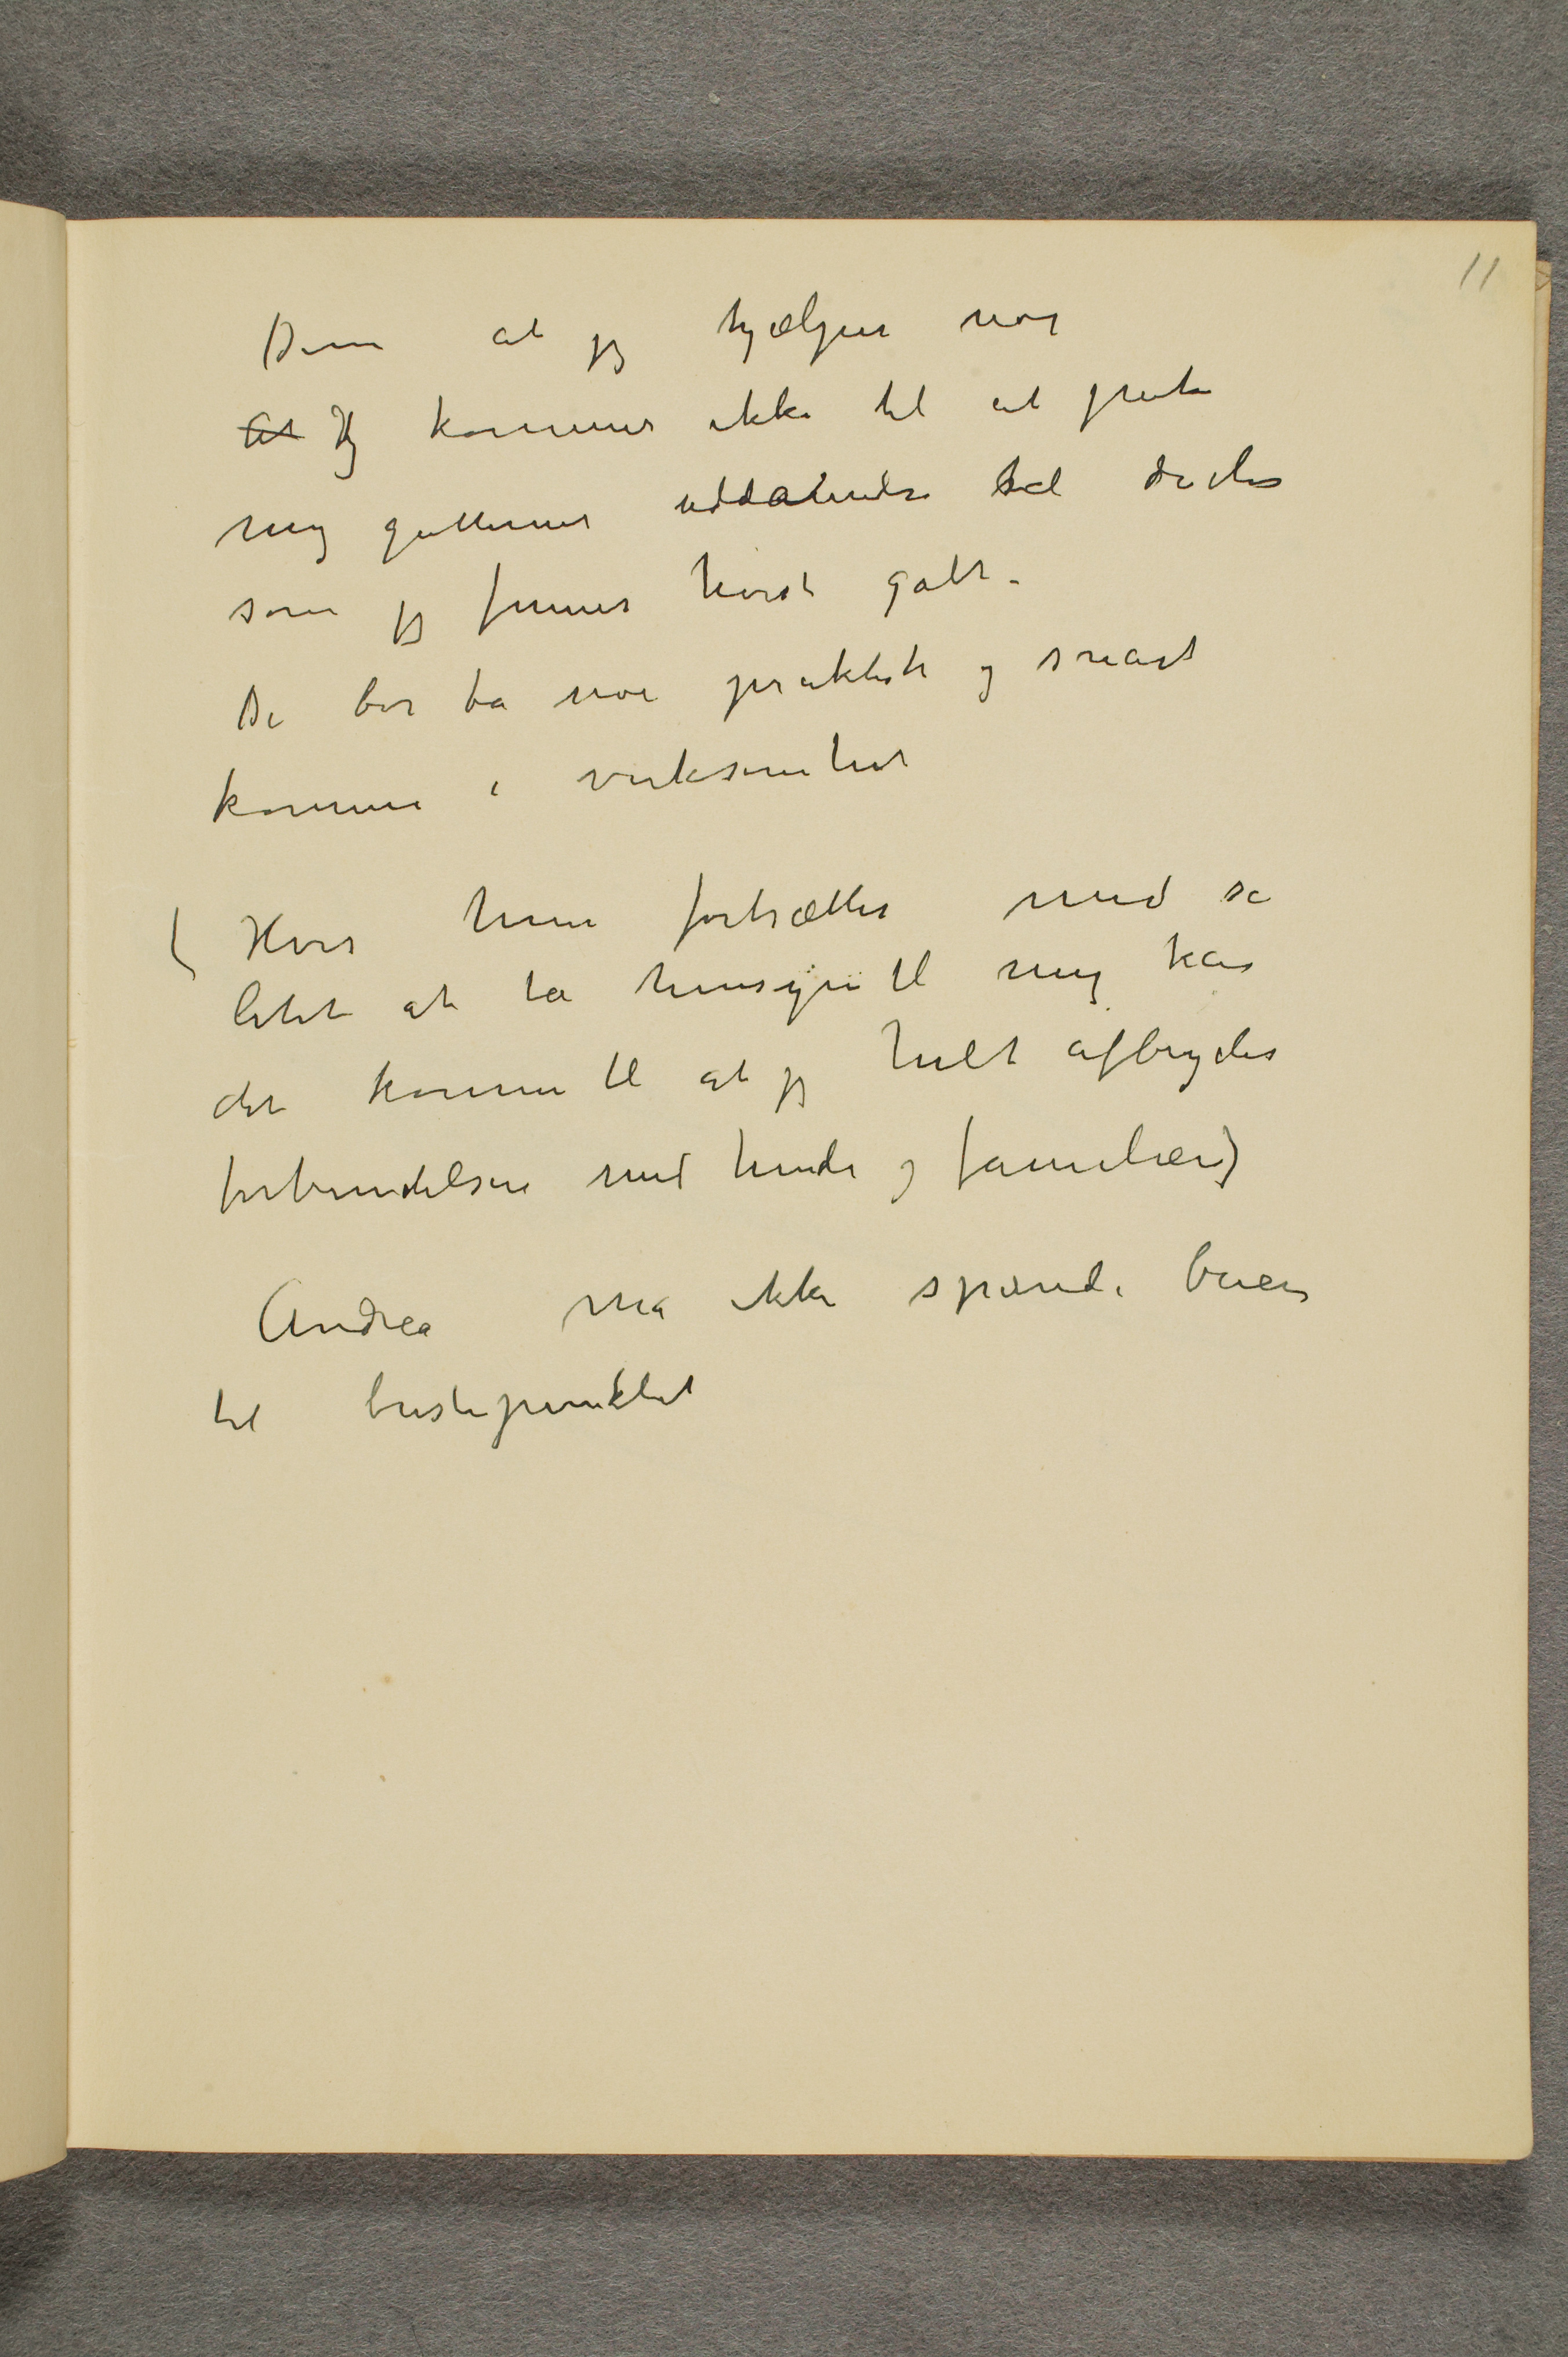 11
at jeg hjælper nor
At Jeg kommer ikke til at
mig gutternes uddannelse til
som jeg finner høist galt.
De bør ta noe praktisk og snart
komme i virksomhet
( Hvis hun fortsætter med så
litet at ta hensyn til mig kan
det komme til at jeg helt afbryder
forbindelsen med hende og familien)
Andrea må ikke spænde buen
til bristepunktet